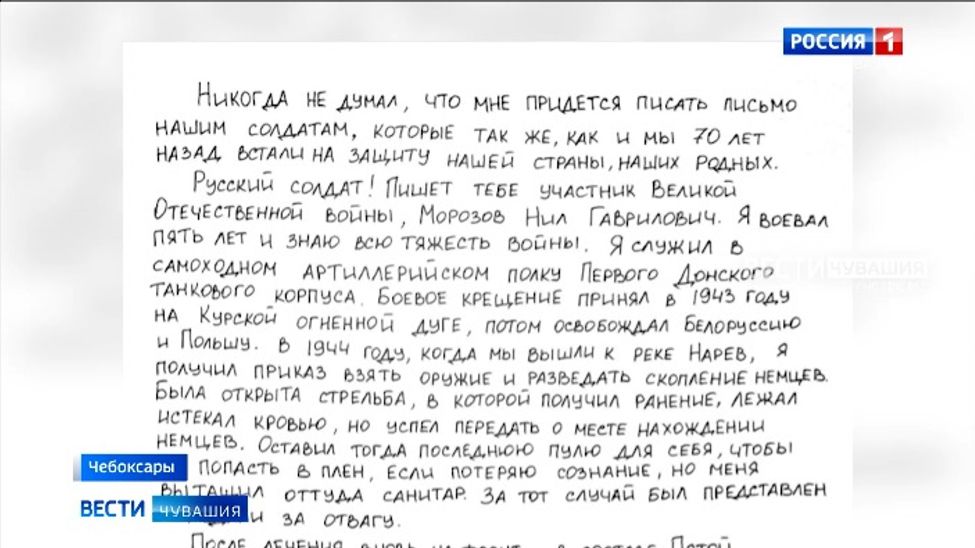 РОССИЯ 1
Никогда не думал, что мне придется писать письмо
нашим солдатам, которые так же, как и мы 70 лет
назад встали на защиту нашей страны, наших родных.
Русский солдат! Пишет тебе участник Великой
Отечественной войны, Морозов Нил Гаврилович. Я воевал
пять лет и знаю всю тяжесть войны. Я служил в
самоходном артиллерийском полку Первого Донского
танкового корпуса. Боевое крещение принял в 1943 году
на Курской огненной дуге, потом освобождал Белоруссию
и Польшу. В 1944 году, когда мы вышли к реке Нарев, я
получил приказ взять оружие и разведать скопление немцев.
Была открыта стрельба, в которой получил ранение, лежал
истекал кровью, но успел передать о месте нахождении
немцев. Оставил тогда последнюю пулю для себя, чтобы
попасть в плен, если потеряю сознание, но меня
вытащил оттуда санитар. За тот случай был представлен
за отвагу.
После лечения вновь на в составе Пятой
ВЕСТИ ЧУВАШИЯ
Чебоксары
ВЕСТИ ЧУВАШИЯ